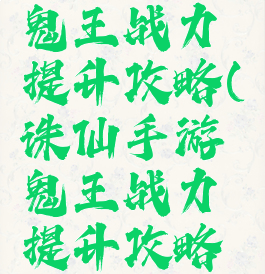 鬼王战力
提升攻略(
诛仙手游
鬼王战力
提升攻略